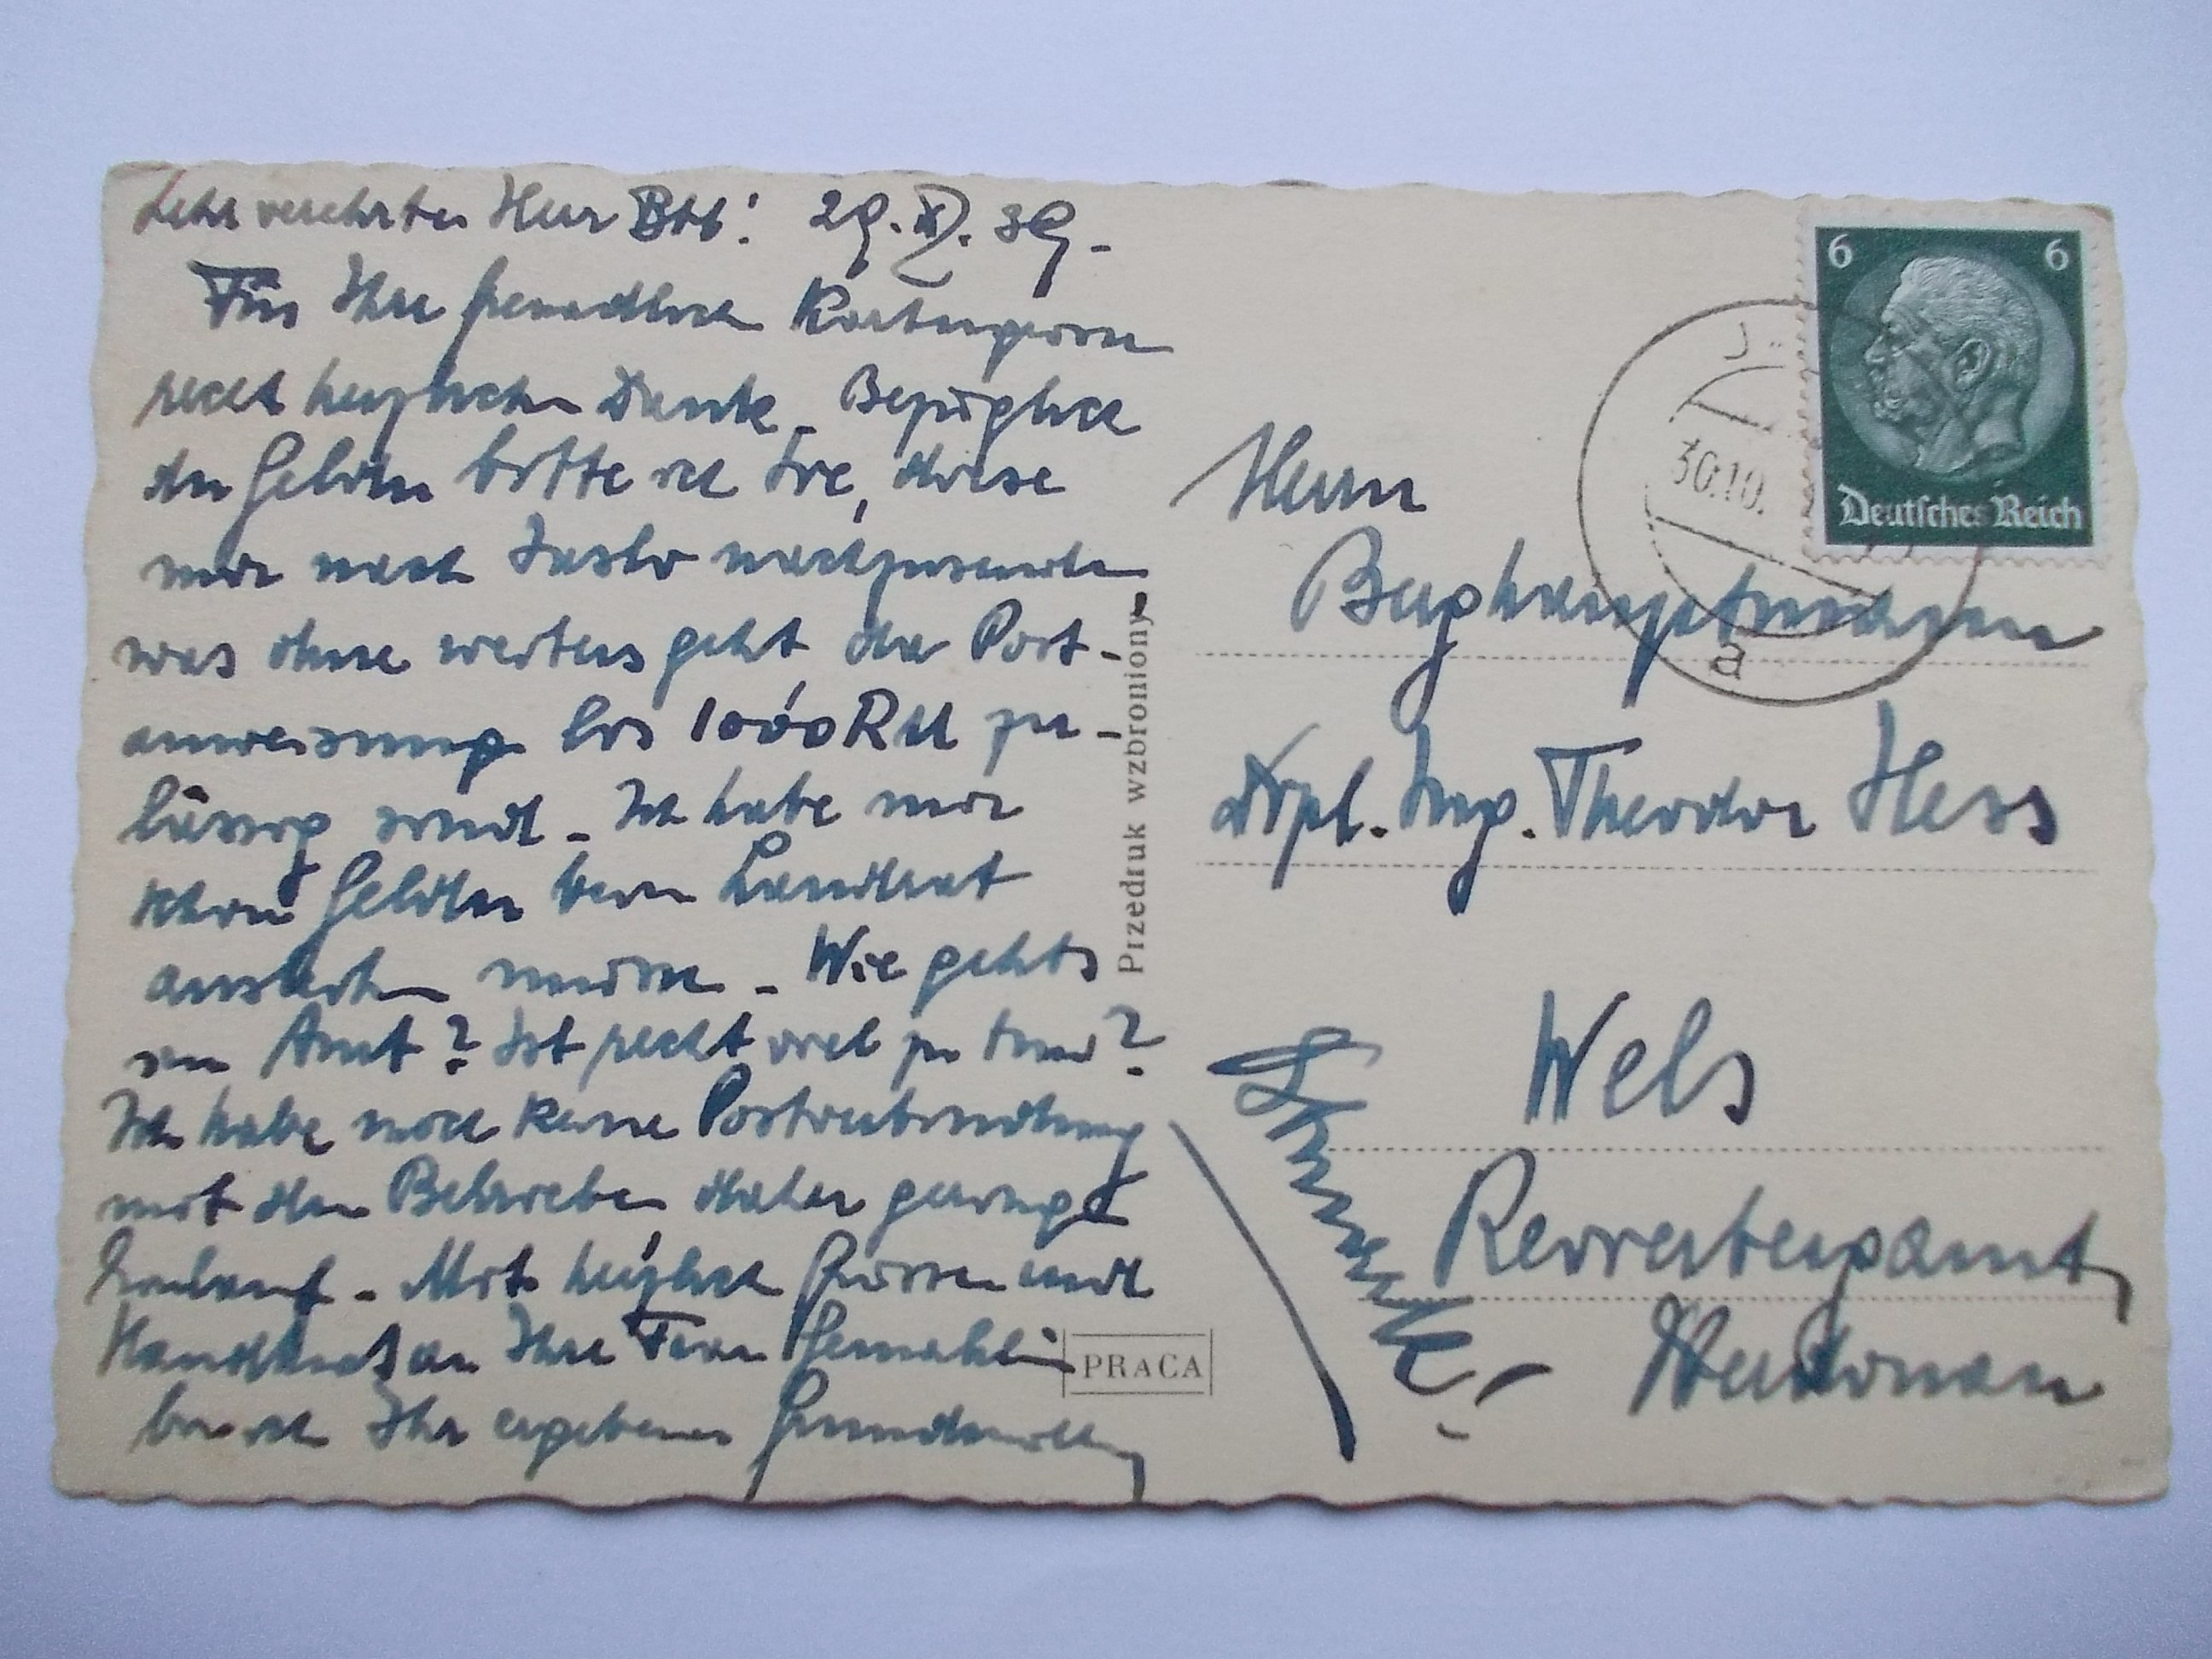 Sehr verehrter Herr Bht! 29.X.39.-
Für Ihre freundlichen Kartengrüsse
recht herzlichen Dank. Bezüglich
der Gelder bitte ich Sie, diese
mir nach Jaslo nachzusenden
was ohne weiters geht da Post-
anweisung bis 1000 RM zu-
lässig sind - Ich habe mir
schon Gelder beim Landrat
ausleihen müssen - Wie gehts
im Amt? Ist recht viel zu tun?
Ich habe noch keine Postverbindung
mit den Betrieben daher geringer
Einlauf - Mit herzlichen Grüssen und
Handkuss an Ihre Frau Gemahlin
bin ich Ihr ergebener
Przedruk wzbroniony
PRACA
6 6
Deutsches Reich
30.10.
a
Herrn
Berghauptmann
Dipl. Ing. Theodor Hess
Wels
Revierbergamt